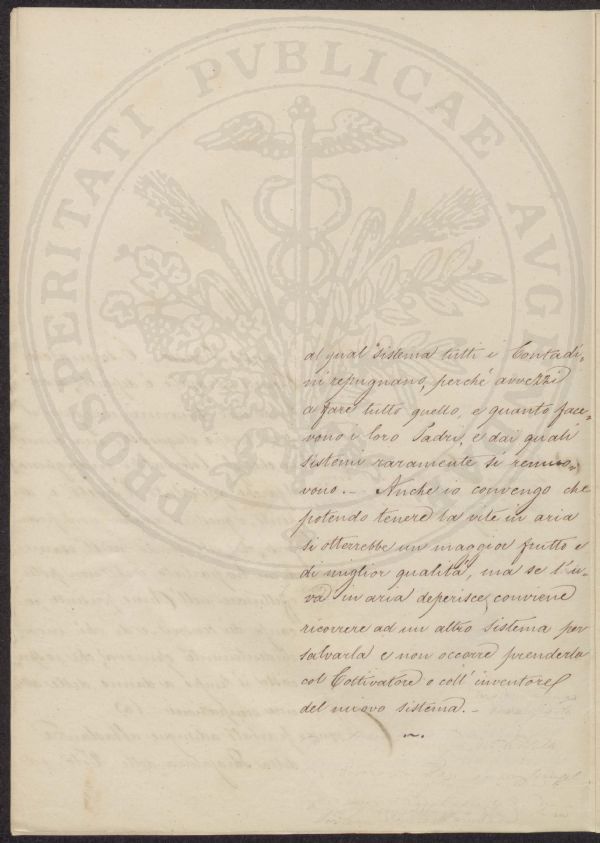 PROSPERITATI PVBLICAE AVGENDAE
al qual sistema tutti i Contadi-
ni repugnano, perchè avvezzi
a fare tutto quello, e quanto face-
vono i loro Padri, e dai quali
sistemi raramente si remuo-
vono. — Anche io convengo che
potendo tenere la vite in aria
si otterrebbe un maggior frutto e
di miglior qualità, ma se l'u-
va in aria deperisce, conviene
ricorrere ad un altro sistema per
salvarla e non occorre prenderla
col Coltivatore o coll' inventore
del nuovo sistema. —